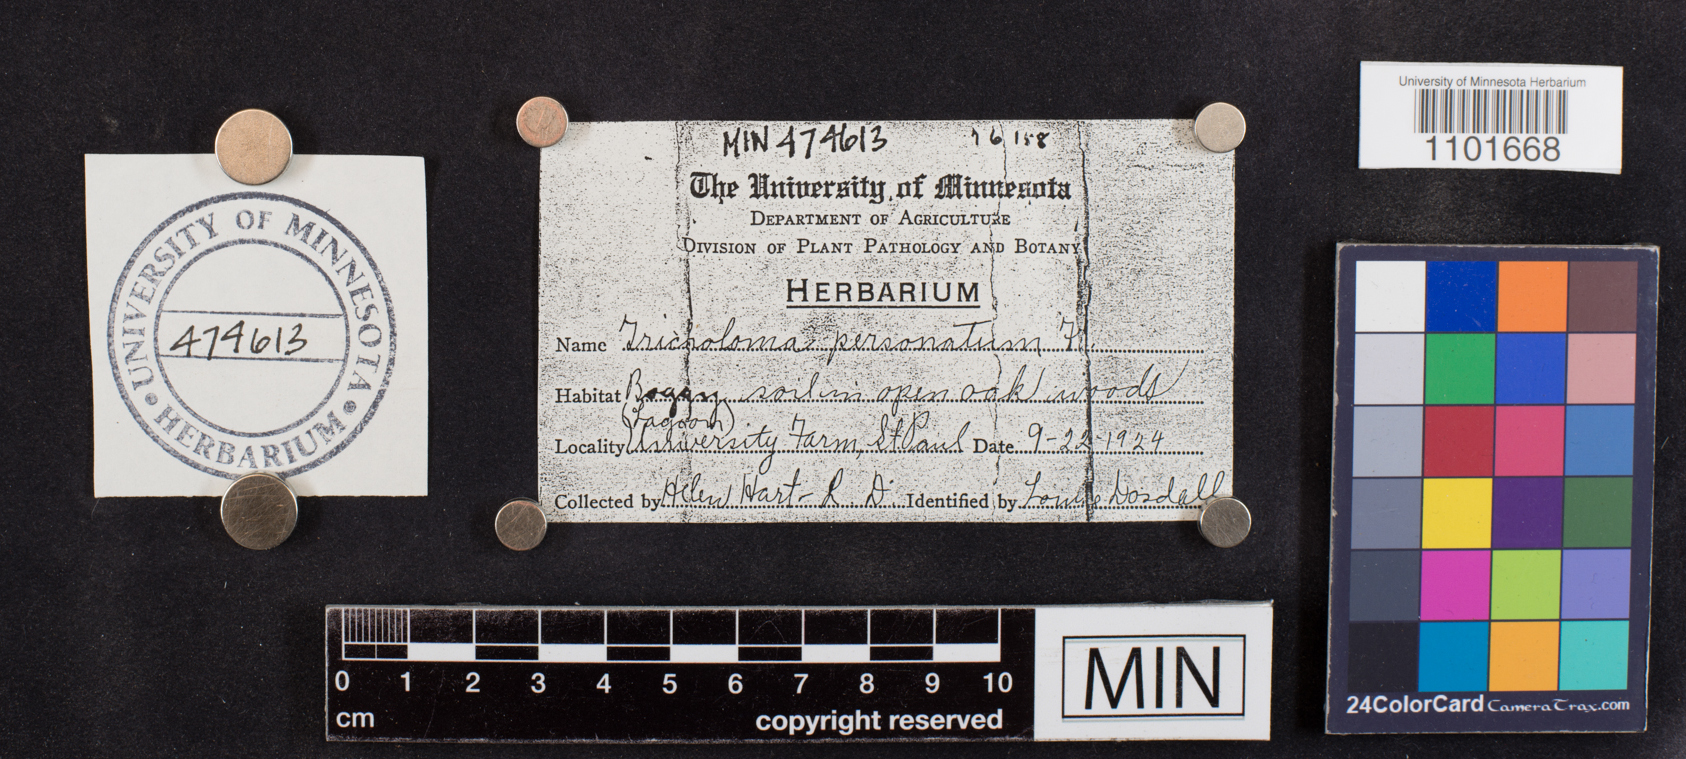 UNIVERSITY OF MINNESOTA
• HERBARIUM •
474613
MIN 474613 76158
The University of Minnesota
DEPARTMENT OF AGRICULTURE
DIVISION OF PLANT PATHOLOGY AND BOTANY
HERBARIUM
Name Tricholoma personatum Fr.
Habitat Boggy soil in open oak woods
(Lagoon)
Locality University Farm, St Paul Date 9-22-1924
Collected by Helen Hart - L. D. Identified by Louise Dosdall
University of Minnesota Herbarium
1101668
0 1 2 3 4 5 6 7 8 9 10
cm
copyright reserved
MIN
24ColorCard CameraTrax.com